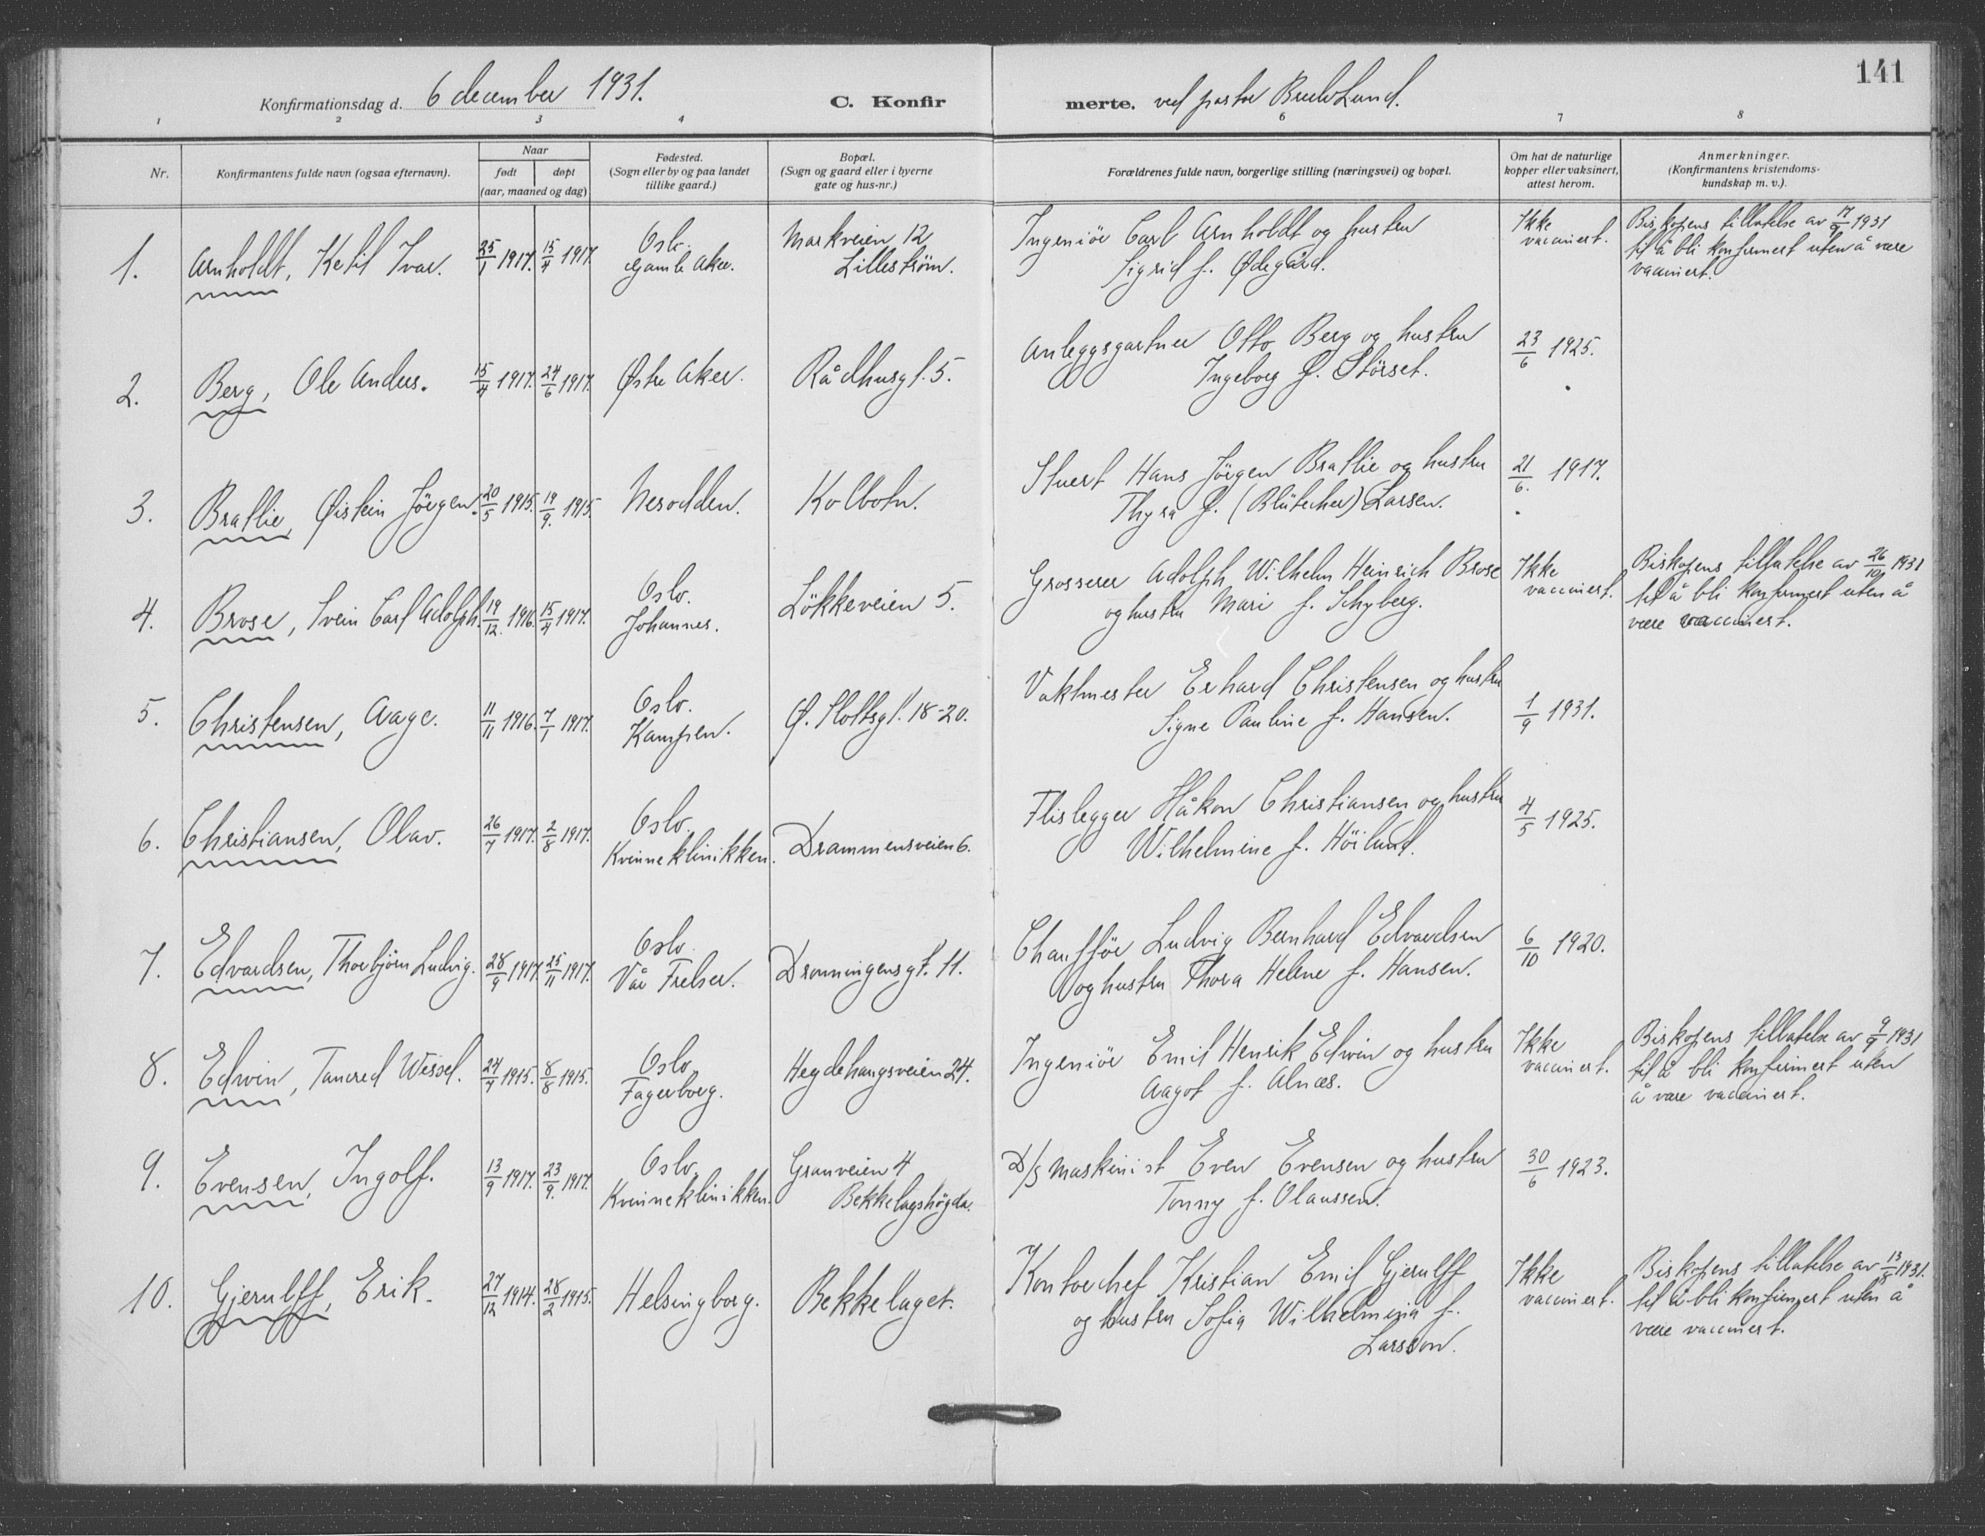 141
Konfirmationsdag d. 6 december 1931. C. Konfirmerte. ved pastor Lund.
1 2 3 4 6 7 8
Nr. Konfirmantens fulde navn (ogsaa efternavn). Naar født døpt (aar, maaned og dag) Fødested. (Sogn eller by og paa landet tillike gaard.) Bopæl. (Sogn og gaard eller i byerne gate og hus-nr.) Forældrenes fulde navn, borgerlige stilling (næringsvei) og bopæl. Om hat de naturlige kopper eller vaksinert, attest herom. Anmerkninger. (Konfirmantens kristendomskundskap m. v.).
1. Arnholdt, Ketil Ivar. 25/1 1917. 15/4 1917. Oslo. Gamle Aker. Markveien 12 Lillestrøm. Ingeniör Carl Arnholdt og hustru Sigrid f. Ødegård. Ikke vaccinert. Biskopens tillatelse av 1931 til å bli konfirmert uten å være vaccinert.
2. Berg, Ole Anders. 15/4 1917. 24/6 1917. Østre Aker. Rådhusgt. 5. Anleggsgartner Otto Berg og hustru Ingeborg f. Störset. 23/6 1925.
3. Bratlie, Øistein Jörgen. 20/5 1915. 19/9. 1915. Nesodden. Kolbotn. Stuert Hans Jörgen Bratlie og hustru Thyra f. (Blütecher) Larsen. 21/6. 1917.
4. Brose, Svein Carl Adolph. 19/12. 1916. 15/4 1917. Oslo. Johannes. Lökkeveien 5. Grosserer Adolph Wilhelm Heinrich Brose og hustru Mari f. Schyberg. Ikke vaccinert. Biskopens tillatelse av 26/10 1931 til å bli konfirmert uten å være vaccinert.
5. Christensen, Aage. 11/11 1916. 7/1 1917. Oslo. Kampen. Ø. Slottsgt. 18-20. Vaktmester Erhard Christensen og hustru Signe Pauline f. Hansen. 1/9 1931.
6. Christiansen, Olav. 26/7 1917. 2/8 1917. Oslo. Kvinneklinikken. Drammensveien 6. Flislegger Håkon Christiansen og hustru Wilhelmine f. Höilund. 4/5 1925.
7. Edvardsen, Thorbjörn Ludvig. 28/9 1917. 25/11 1917. Oslo. Vår Frelser. Dronningensgt. 11. Chaufför Ludvig Bernhard Edvardsen og hustru Thora Helene f. Hansen. 6/10 1920.
8. Edwin, Tancred Wessel. 24/7 1915. 8/8 1915. Oslo. Fagerborg. Hegdehaugsveien 24. Ingeniör Emil Henrik Edwin og hustru Aagot f. Alnæs. Ikke vaccinert. Biskopens tillatelse av 9/9 1931 til å bli konfirmert uten å være vaccinert.
9. Evensen, Ingolf. 13/9 1917. 23/9. 1917. Oslo. Kvinneklinikken. Granveien 4 Bekkelagshögda. D/s maskinist Even Evensen og hustru Tonny f. Olaussen. 30/6 1923.
10. Gjerulff, Erik. 27/12 1914. 28/2 1915. Helsingborg. Bekkelaget. Kontorchef Kristian Emil Gjerulff og hustru Sofia Wilhelmina f. Larsson. Ikke vaccinert. Biskopens tillatelse av 13/8 1931. til å bli konfirmert uten å være vaccinert.